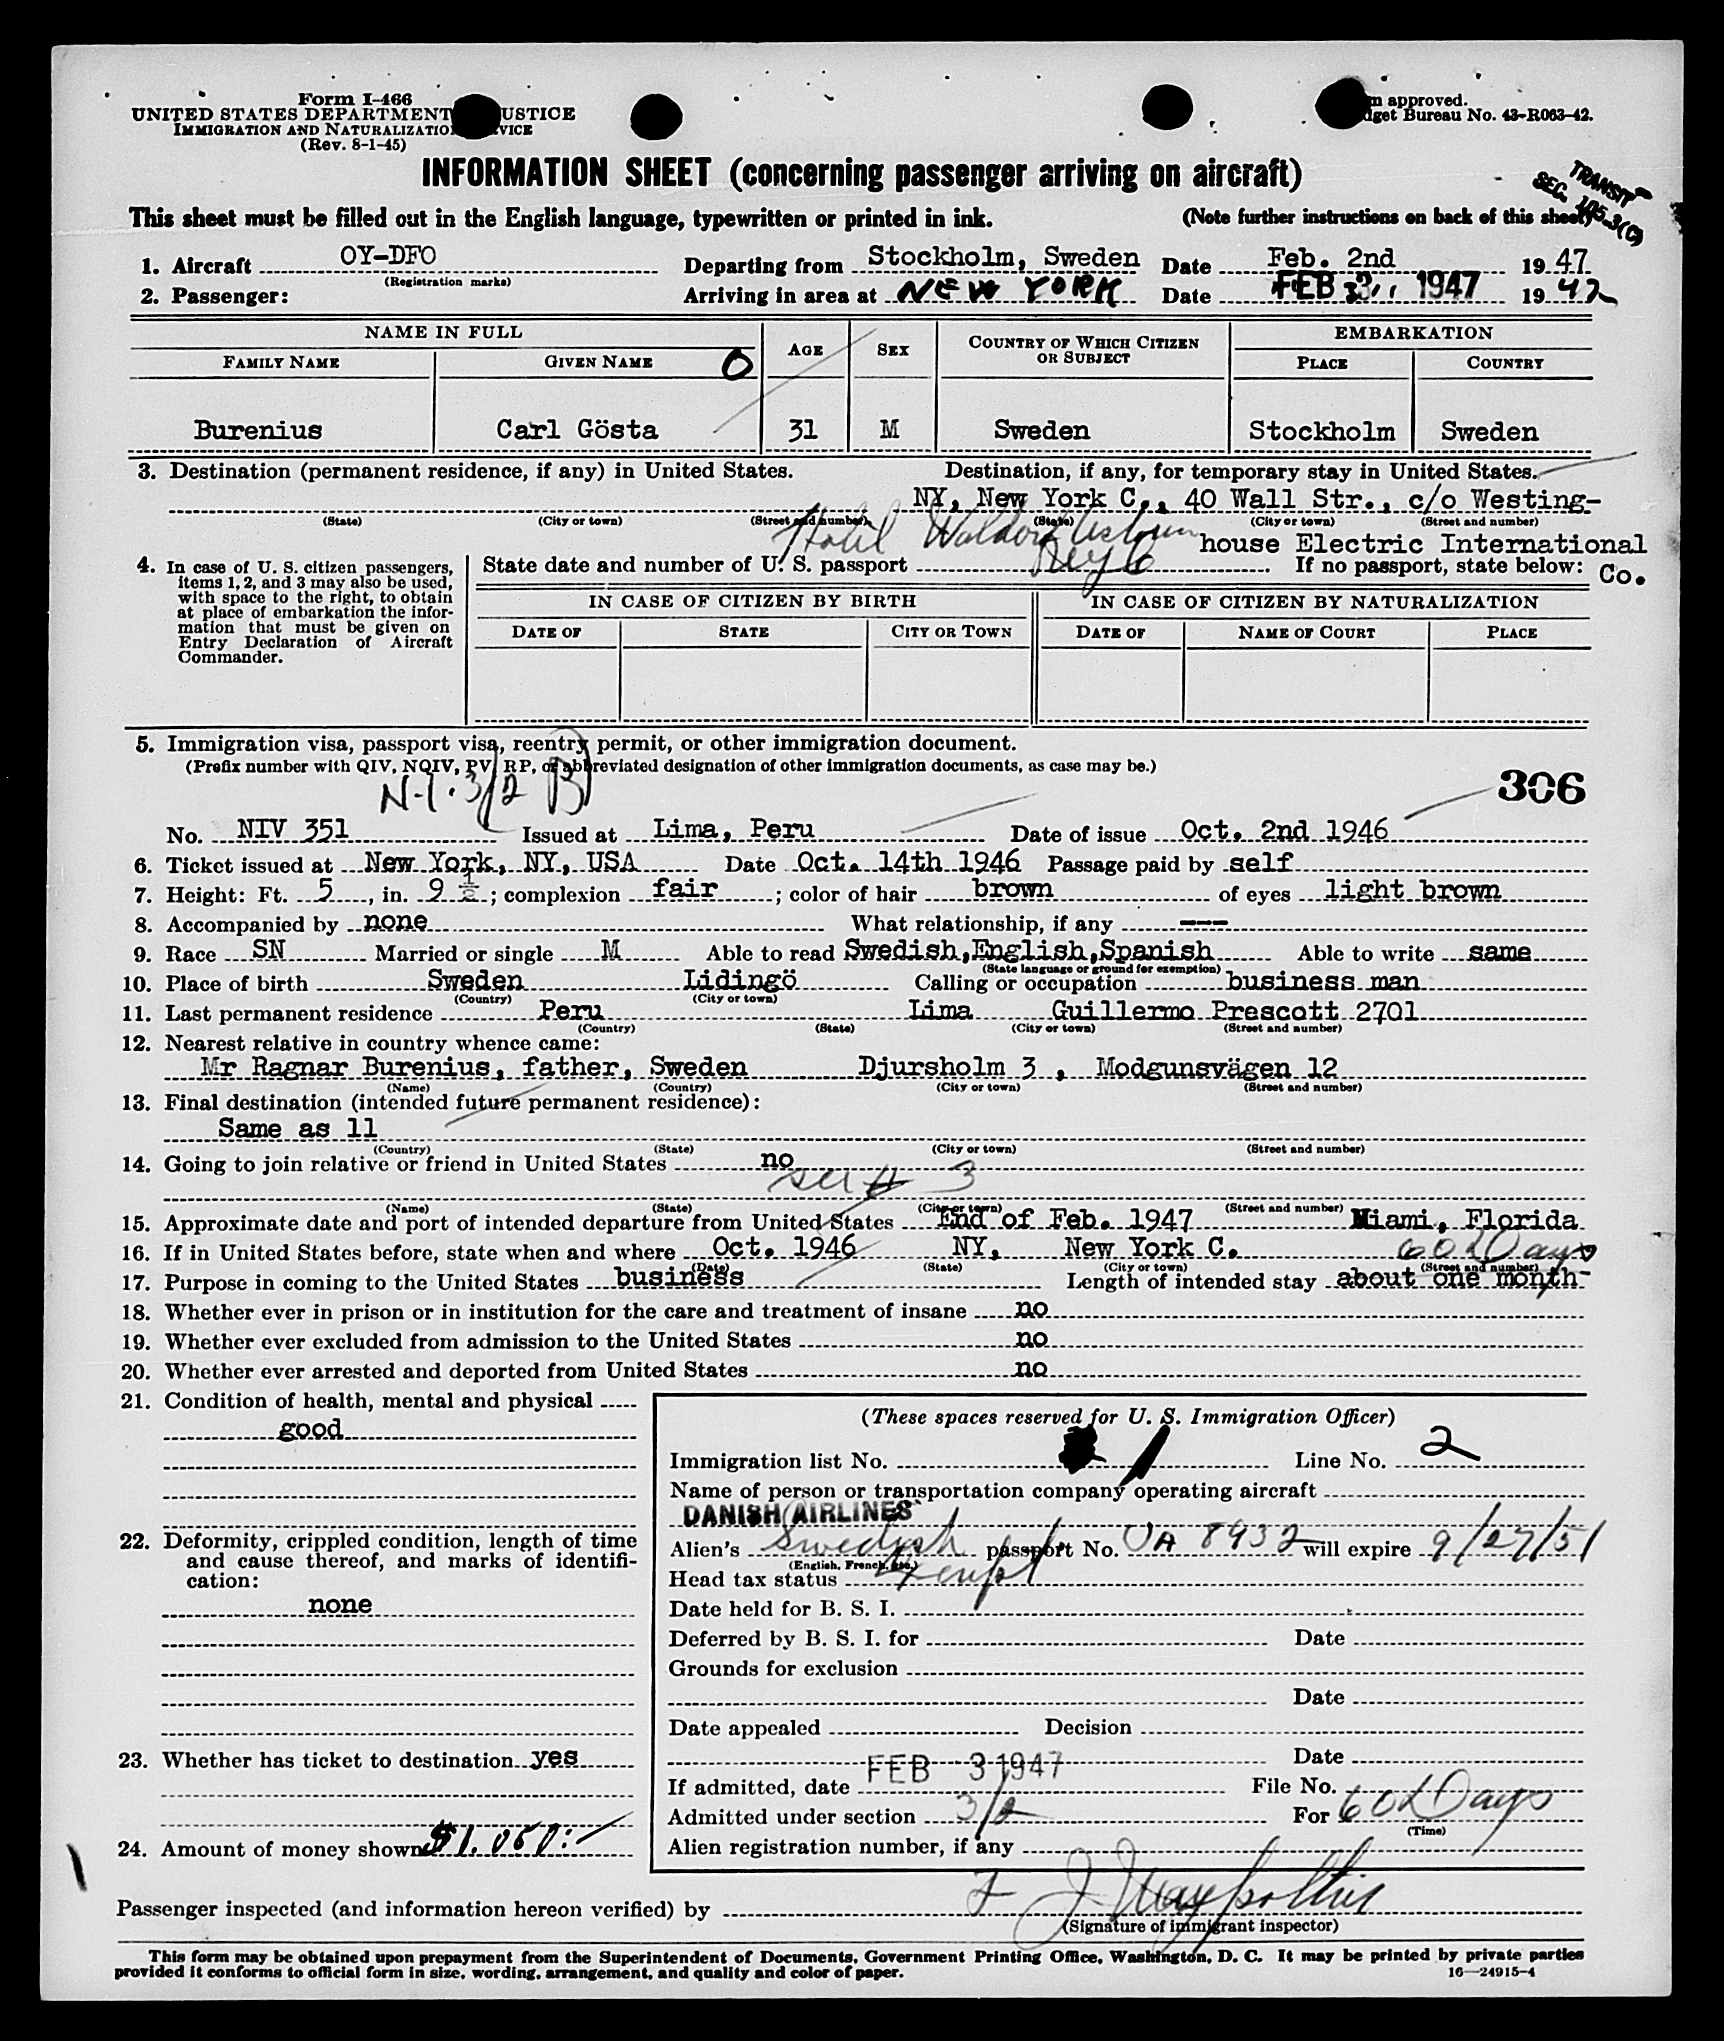 Form I-466
UNITED STATES DEPARTMENT USTICE
IMMIGRATION AND NATURALIZATIO VICE
(Rev. 8-1-45)
m approved.
dget Bureau No. 43-R063-42.
INFORMATION SHEET (concerning passenger arriving on aircraft)
TRANSIT
SEC. 105.3(C)
This sheet must be filled out in the English language, typewritten or printed in ink. (Note further instructions on back of this sheet)
1. Aircraft OY-DFO Departing from Stockholm, Sweden Date Feb. 2nd 19 47
(Registration marks)
2. Passenger: Arriving in area at NEW YORK Date FEB 3 1947 19
NAME IN FULL AGE SEX COUNTRY OF WHICH CITIZEN OR SUBJECT EMBARKATION
FAMILY NAME GIVEN NAME O PLACE COUNTRY
Burenius Carl Gösta 31 M Sweden Stockholm Sweden
3. Destination (permanent residence, if any) in United States. Destination, if any, for temporary stay in United States.
NY, New York C., 40 Wall Str., c/o Westing-
(State) (City or town) (Street and number) (State) (City or town) (Street and number)
Hotel Waldorf
house Electric International
Co.
4. In case of U. S. citizen passengers, items 1, 2, and 3 may also be used, with space to the right, to obtain at place of embarkation the information that must be given on Entry Declaration of Aircraft Commander.
State date and number of U. S. passport If no passport, state below:
IN CASE OF CITIZEN BY BIRTH IN CASE OF CITIZEN BY NATURALIZATION
DATE OF STATE CITY OR TOWN DATE OF NAME OF COURT PLACE
5. Immigration visa, passport visa, reentry permit, or other immigration document.
(Prefix number with QIV, NQIV, PV, RP, or abbreviated designation of other immigration documents, as case may be.)
N-1. 3/2 B
306
No. NIV 351 Issued at Lima, Peru Date of issue Oct. 2nd 1946
6. Ticket issued at New York, NY, USA Date Oct. 14th 1946 Passage paid by self
7. Height: Ft. 5, in. 9 ½; complexion fair; color of hair brown of eyes light brown
8. Accompanied by none What relationship, if any ---
9. Race SN Married or single M Able to read Swedish,English,Spanish Able to write same
(State language or ground for exemption)
10. Place of birth Sweden Lidingö Calling or occupation business man
(Country) (City or town)
11. Last permanent residence Peru Lima Guillermo Prescott 2701
(Country) (State) (City or town) (Street and number)
12. Nearest relative in country whence came:
Mr Ragnar Burenius, father, Sweden Djursholm 3 , Modgunsvägen 12
(Name) (Country) (City or town) (Street and number)
13. Final destination (intended future permanent residence):
Same as 11
(Country) (State) (City or town) (Street and number)
14. Going to join relative or friend in United States no
3
(Name) (State) (City or town) (Street and number)
15. Approximate date and port of intended departure from United States End of Feb. 1947 Miami, Florida
16. If in United States before, state when and where Oct. 1946 NY, New York C. 60 Days
(Date) (State) (City or town) (Street and number)
17. Purpose in coming to the United States business Length of intended stay about one month
18. Whether ever in prison or in institution for the care and treatment of insane no
19. Whether ever excluded from admission to the United States no
20. Whether ever arrested and deported from United States no
21. Condition of health, mental and physical
good
22. Deformity, crippled condition, length of time and cause thereof, and marks of identification:
none
23. Whether has ticket to destination yes
24. Amount of money shown $1.050:
(These spaces reserved for U. S. Immigration Officer)
Immigration list No. 1 Line No. 2
Name of person or transportation company operating aircraft
DANISH AIRLINES
Alien's Swedish passport No. UA 8932 will expire 9/27/51
(English, French, etc.)
Head tax status Exempt
Date held for B. S. I.
Deferred by B. S. I. for Date
Grounds for exclusion
Date
Date appealed Decision
Date
If admitted, date FEB 3 1947 File No.
Admitted under section 3/2 For 60 Days
(Time)
Alien registration number, if any
Passenger inspected (and information hereon verified) by
(Signature of immigrant inspector)
This form may be obtained upon prepayment from the Superintendent of Documents, Government Printing Office, Washington, D. C. It may be printed by private parties
provided it conforms to official form in size, wording, arrangement, and quality and color of paper. 16—24915-4